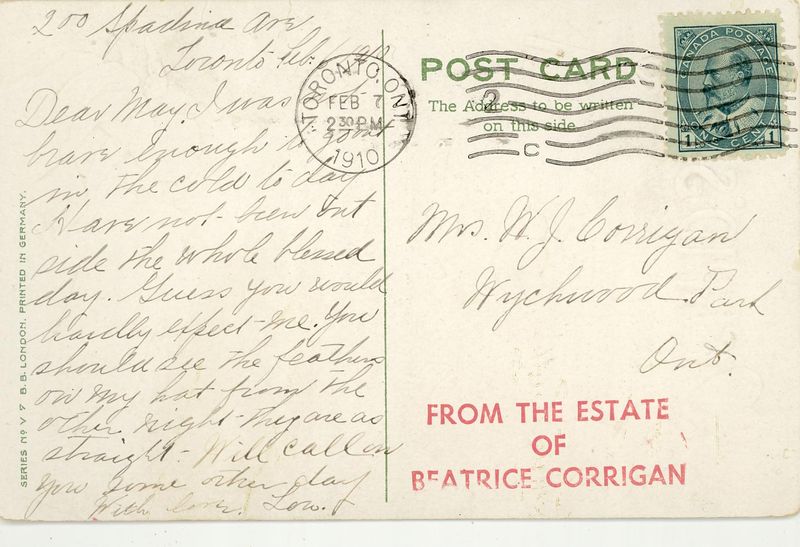 200 Spadina Ave
Toronto Feb.
Dear May, I was not
brave enough to go out
in the cold to day
Have not been out
side the whole blessed
day. Guess you would
hardly expect me. You
should see the feathers
on my hat from the
other night - they are as
straight - Will call on
you some other day
With love. Low.
SERIES No V 7 B.B. LONDON. PRINTED IN GERMANY.
TORONTO, ONT
FEB 7
2 30 PM
1910
POST CARD
The Address to be written
on this side
2
C
CANADA POSTAGE
1 ONE CENT 1
Mrs. W. J. Corrigan
Wychwood Park
Ont.
FROM THE ESTATE
OF
BEATRICE CORRIGAN